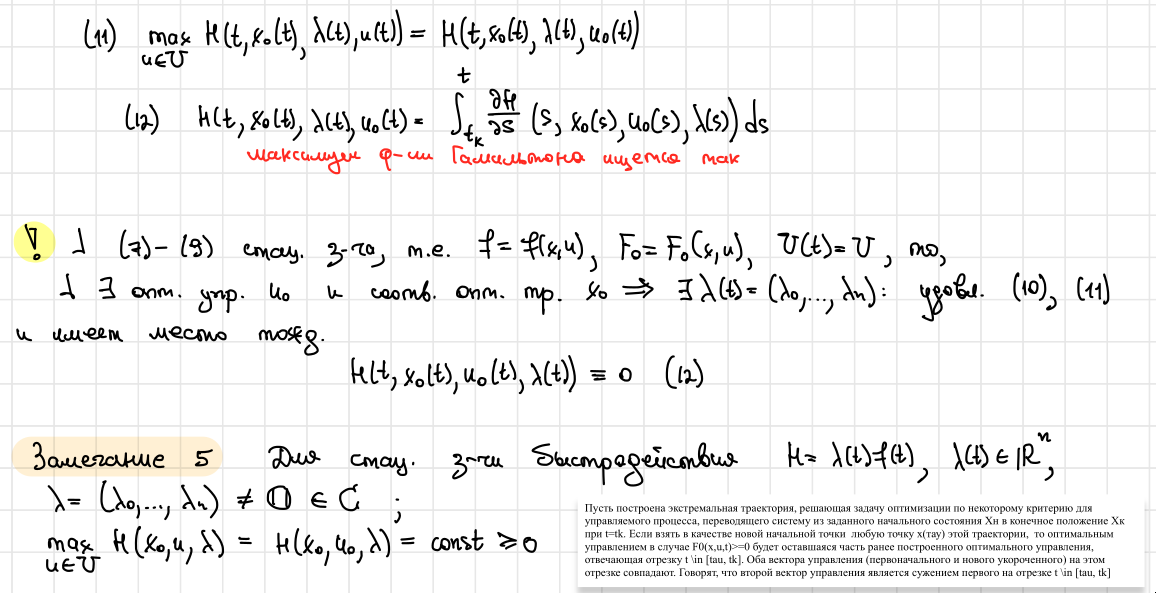 (11) max H(t, x₀(t), λ(t), u(t)) = H(t, x₀(t), λ(t), u₀(t))
u∈U
(12) H(t, x₀(t), λ(t), u₀(t) = ∫_{t_k}^{t} ∂H/∂s (s, x₀(s), u₀(s), λ(s)) ds
максимум ф-ии Гамильтона ищется так
! ⅃ (7)-(9) стац. з-ча, т.е. f = f(x,u), F₀ = F₀(x,u), U(t) = U, то,
⅃ ∃ опт. упр. u₀ и соотв. опт. тр. x₀ ⇒ ∃ λ(t) = (λ₀, ..., λn): удовл. (10), (11)
и имеет место тожд.
H(t, x₀(t), u₀(t), λ(t)) ≡ 0 (12)
Замечание 5 Для стац. з-чи быстродействия H = λ(t)f(t), λ(t) ∈ ℝⁿ,
λ = (λ₀, ..., λn) ≠ 𝕆 ∈ C ;
max H(x₀, u, λ) = H(x₀, u₀, λ) = const ≥ 0
u∈U
Пусть построена экстремальная траектория, решающая задачу оптимизации по некоторому критерию для
управляемого процесса, переводящего систему из заданного начального состояния Хн в конечное положение Хк
при t=tk. Если взять в качестве новой начальной точки любую точку x(тау) этой траектории, то оптимальным
управлением в случае F0(x,u,t)>=0 будет оставшаяся часть ранее построенного оптимального управления,
отвечающая отрезку t \in [tau, tk]. Оба вектора управления (первоначального и нового укороченного) на этом
отрезке совпадают. Говорят, что второй вектор управления является сужением первого на отрезке t \in [tau, tk]